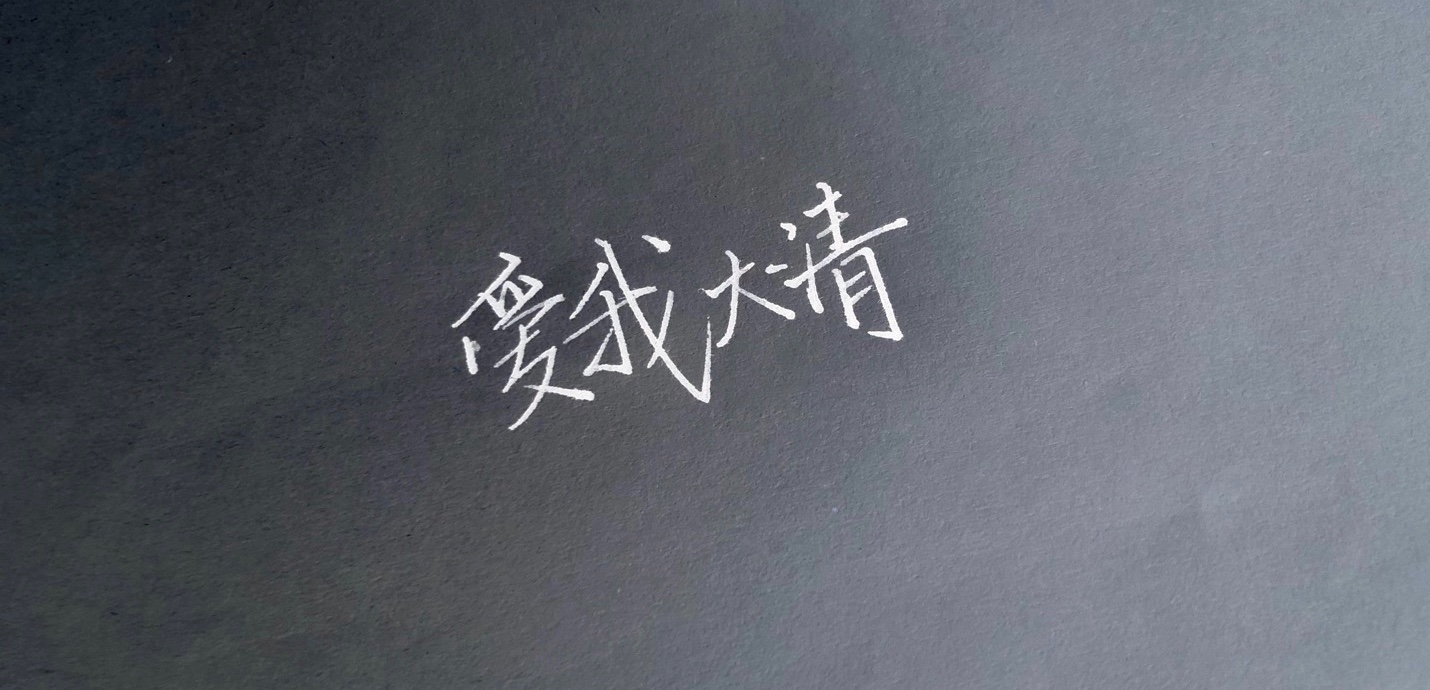 爱我大清